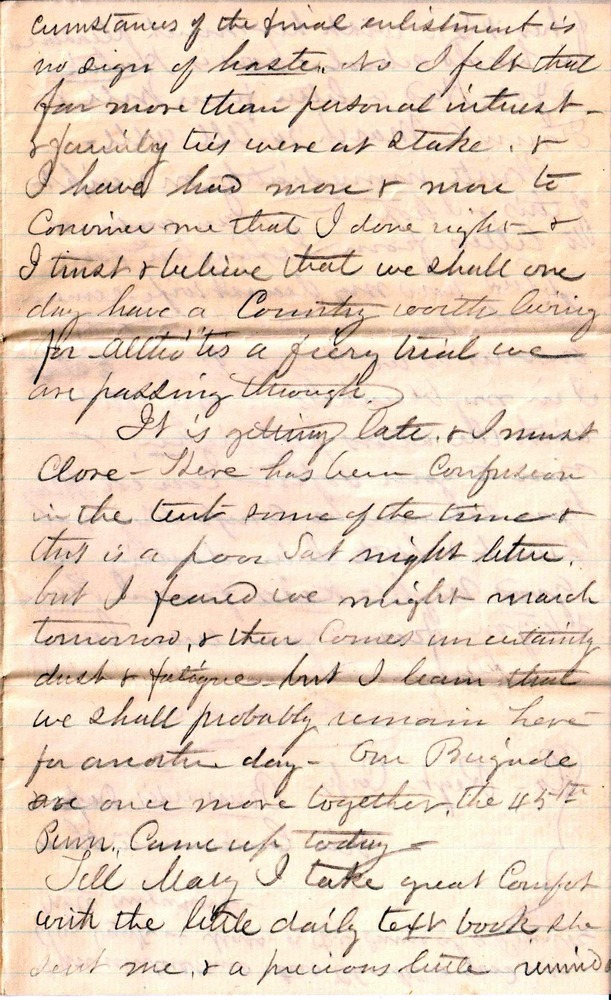 cumstances of the final enlistment is
no sign of haste. No I felt that
far more than personal intrest -
& family ties were at stake. &
I have had more & more to
convince me that I done right - &
I trust & believe that we shall one
day have a Country worth living
for - altho 'tis a fiery trial we
are passing through.
It is getting late. & I must
close - There has been confusion
in the tent some of the time &
this is a poor Sat night letter.
but I feared we might march
tomorrow, & then comes uncertainty
dust & fatigue - but I learn that
we shall probably remain here
for another day - Our Brigade
are once more together, the 45th
Penn. Came up today -
Tell Mary I take great Comfort
with the little daily text book she
sent me, & a precious little remind